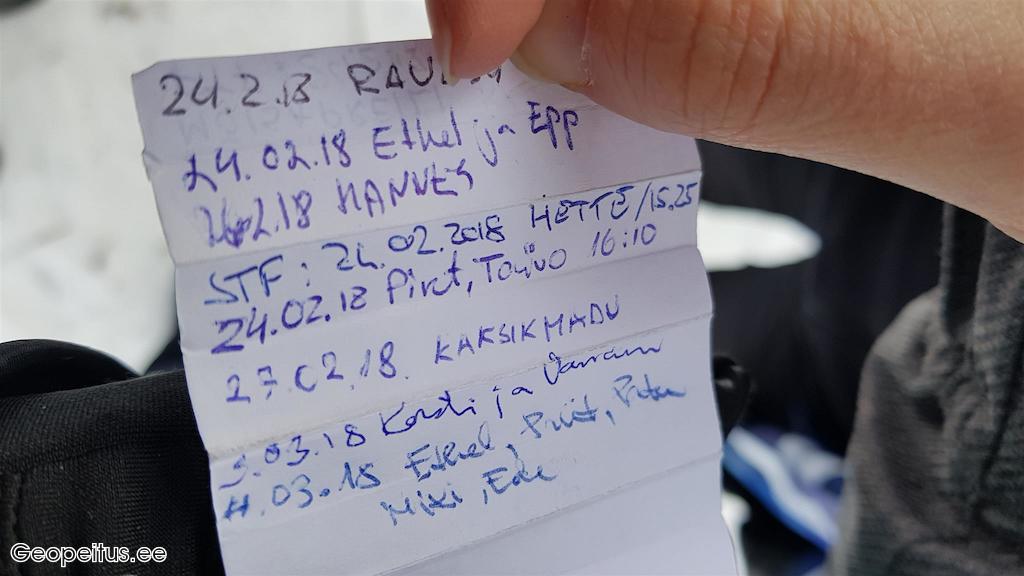 24.2.18
24.02.18 Ethel ja Epp
24.02.18 HANNES
STF: 24.02.2018 HETTE/15.25
24.02.18 Piret, Toivo 16:10
27.02.18. KAKSIKMADU
.03.18 ja
.03.18 Ethel, Priit,
Miki,
Geopeitus.ee